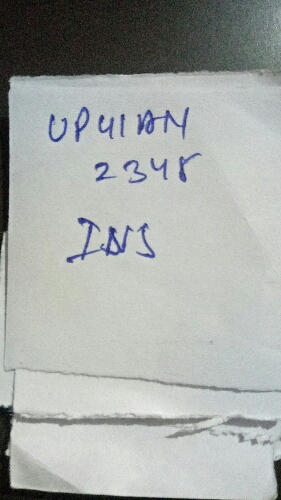 UP41AN
2348
INS